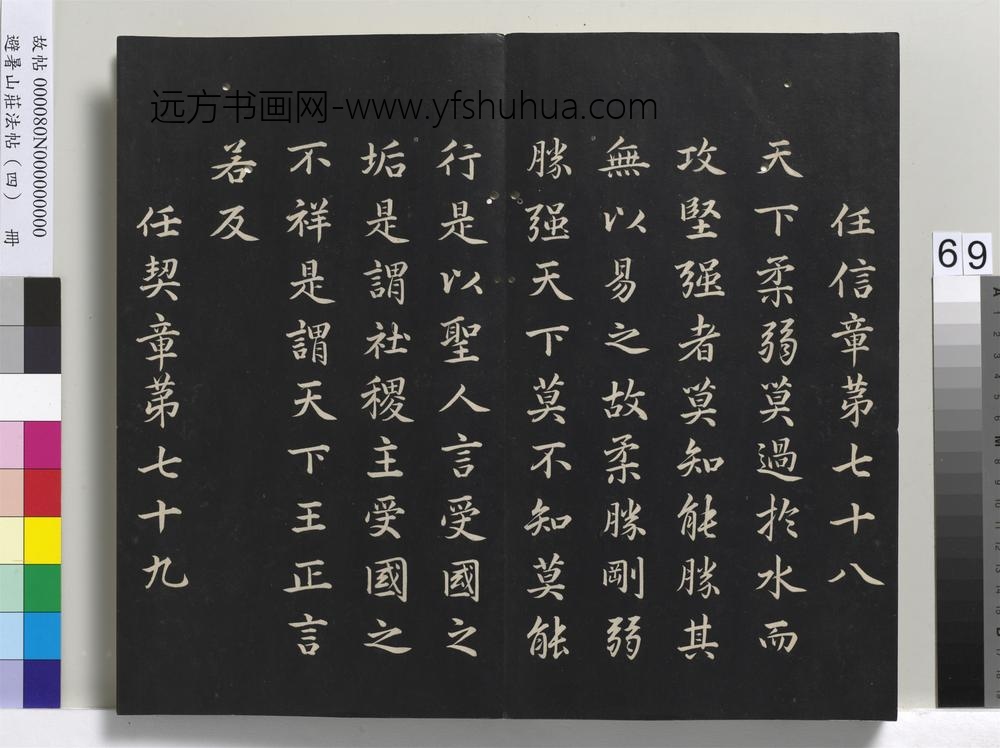 任信章第七十八
天下柔弱莫過於水而
攻堅强者莫知能勝其
無以易之故柔勝剛弱
勝强天下莫不知莫能
行是以聖人言受國之
垢是謂社稷主受國之
不祥是謂天下王正言
若反
任契章第七十九
远方书画网-www.yfshuhua.com
故帖 000080N000000000
避暑山莊法帖（四） 冊
69